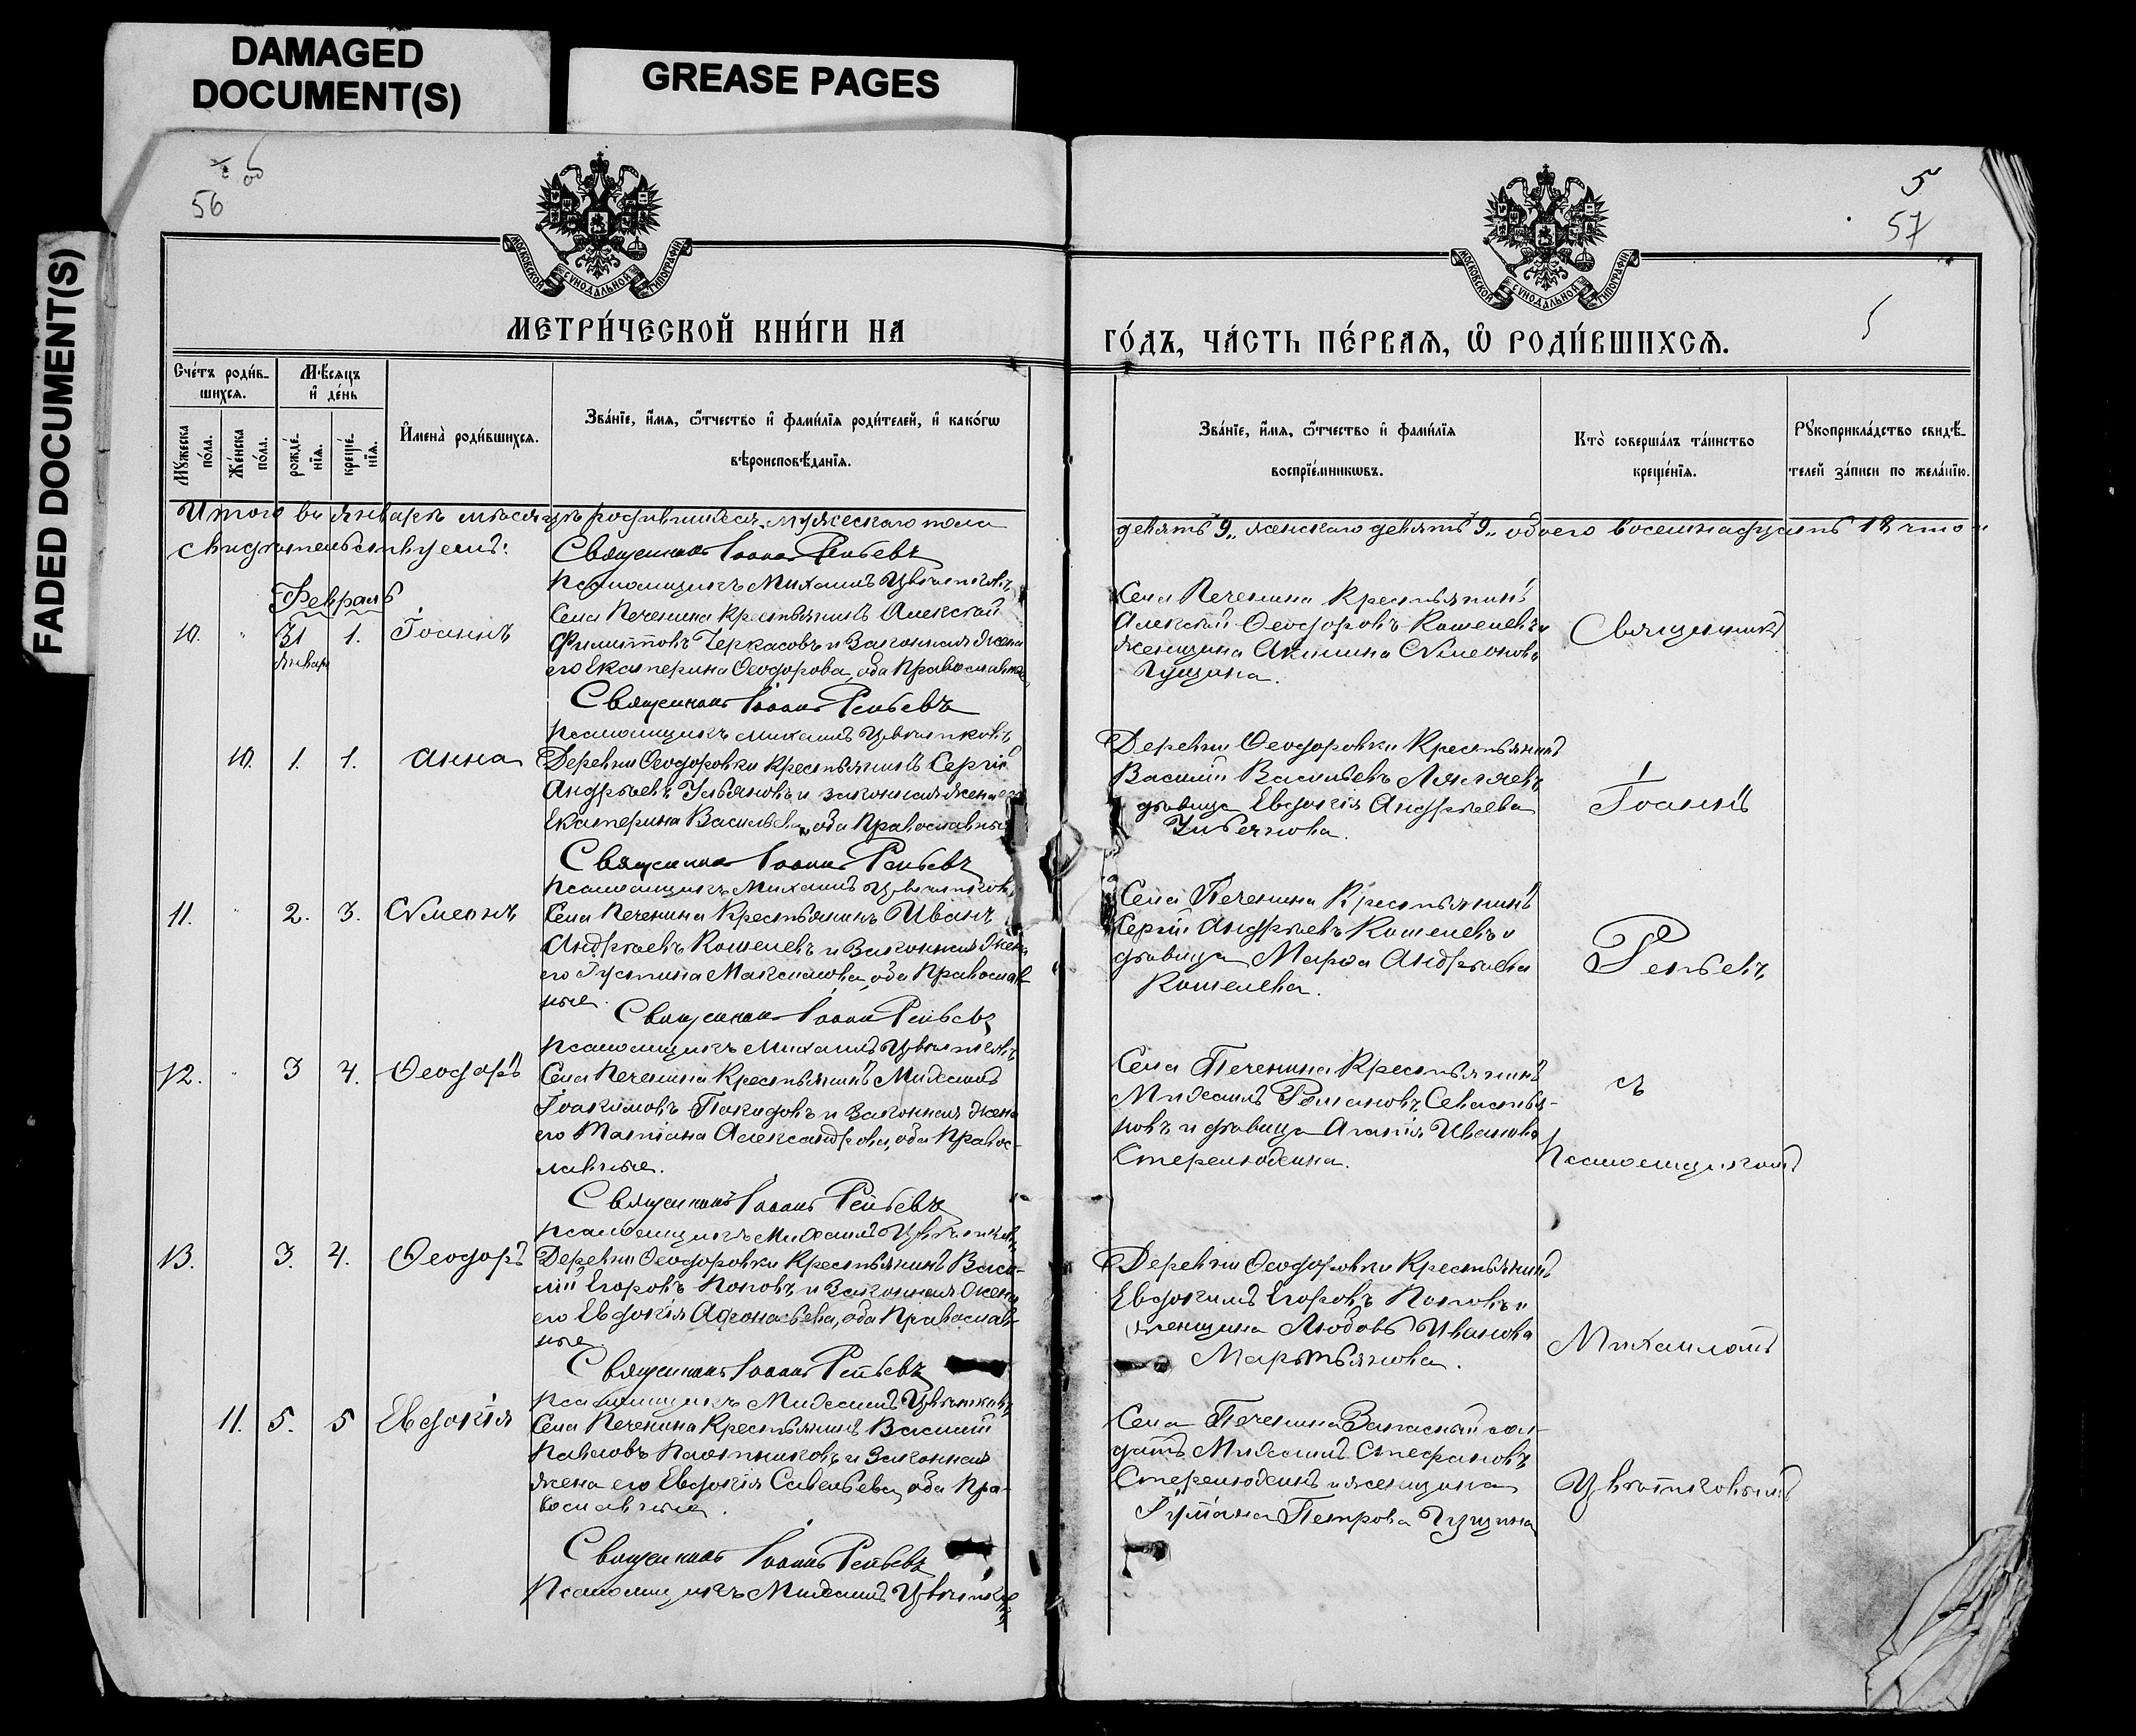 DAMAGED
DOCUMENT(S)
GREASE PAGES
FADED DOCUMENT(S)
56
5
57
МОСКОВСКОЙ СѴНОДАЛЬНОЙ ТИПОГРАФІИ
МОСКОВСКОЙ СѴНОДАЛЬНОЙ ТИПОГРАФІИ
МЕТРИ́ЧЕСКОЙ КНИ́ГИ НА
ГО́ДЪ, ЧА́СТЬ ПЕ́РВАѦ, Ѽ РОДИ́ВШИХСѦ.
Сче́тъ роди́в-
шихсѧ.
Мѣ́сѧцъ
и҆ де́нь
Мꙋ́жеска
по́ла.
Же́нска
по́ла.
рожде́-
нїѧ.
креще́-
нїѧ.
И҆мена̀ роди́вшихсѧ.
Зва́нїе, и҆́мѧ, ѻ҆́тчество и҆ фами́лїѧ роди́телей, и҆ како́гѡ
вѣроисповѣ́данїѧ.
Зва́нїе, и҆́мѧ, ѻ҆́тчество и҆ фами́лїѧ
воспрїе́мникѡвъ.
Кто̀ соверша́лъ та́инство
креще́нїѧ.
Рꙋкоприкла́дство свидѣ́-
телей за́писи по жела́нїю.
Итого въ Январѣ мѣсяцѣ родившихся мужескаго пола
девять „9„ женскаго девять „9„ обоего восемнадцать 18 что
свидѣтельствуемъ:
Священникъ Іоаннъ Репьевъ
Псаломщикъ Михаилъ Цвѣтковъ
Февраль
10. „ 31 1. Іоаннъ
Января
Села Печенина Крестьянинъ Алексѣй
Филипповъ Черкасовъ и Законная жена
его Екатерина Ѳеодорова, оба Православные
Села Печенина Крестьянинъ
Алексѣй Ѳеодоровъ Кошелевъ и
женщина Акилина Сѵмеонова
Гущина.
Священникъ
Священникъ Іоаннъ Репьевъ
Псаломщикъ Михаилъ Цвѣтковъ
10. 1. 1. Анна
Деревни Ѳеодоровки Крестьянинъ Сергій
Андреевъ Ульяновъ и законная жена его
Екатерина Васильева, оба Православные
Деревни Ѳеодоровки Крестьянинъ
Василій Васильевъ
дѣвица Евдокія Андреева
Ульянова.
Іоаннъ
Священникъ Іоаннъ Репьевъ
Псаломщикъ Михаилъ Цвѣтковъ
11. „ 2. 3. Сѵмеонъ
Села Печенина Крестьянинъ Иванъ
Андреевъ Кошелевъ и Законная Жена
его Іустина Максимова, оба Православ-
ные.
Села Печенина Крестьянинъ
Сергій Андреевъ Кошелевъ и
дѣвица Марѳа Андреева
Кошелева.
Репьевъ
Священникъ Іоаннъ Репьевъ
Псаломщикъ Михаилъ Цвѣтковъ
12. „ 3 4. Ѳеодоръ
Села Печенина Крестьянинъ Михаилъ
Іоакимовъ и Законная жена
его Татіана Александрова, оба Правос-
лавные.
Села Печенина Крестьянинъ
Михаилъ Романовъ Севастья-
новъ и дѣвица Агапія Иванова
Стерелюхина.
съ
Псаломщикомъ
Священникъ Іоаннъ Репьевъ
Псаломщикъ Михаилъ Цвѣтковъ
13. 3. 4. Ѳеодоръ
Деревни Ѳеодоровки Крестьянинъ Васи-
лій Егоровъ Поповъ и Законная Жена
его Евдокія Аѳонасьева, оба Православ-
ные
Деревни Ѳеодоровки Крестьянинъ
Евдокимъ Егоровъ Поповъ и
женщина Любовь Иванова
Мартьянова.
Михаиломъ
Священникъ Іоаннъ Репьевъ
Псаломщикъ Михаилъ Цвѣтковъ
11. 5. 5 Евдокія
Села Печенина Крестьянинъ Василій
Павловъ Плотниковъ и Законная
жена его Евдокія Савельева, оба Пра-
вославные.
Села Печенина Запасный сол-
датъ Михаилъ Стефановъ
Стерелюхинъ и женщина
Петрова Гущина
Цвѣтковымъ
Священникъ Іоаннъ Репьевъ
Псаломщикъ Михаилъ Цвѣтковъ